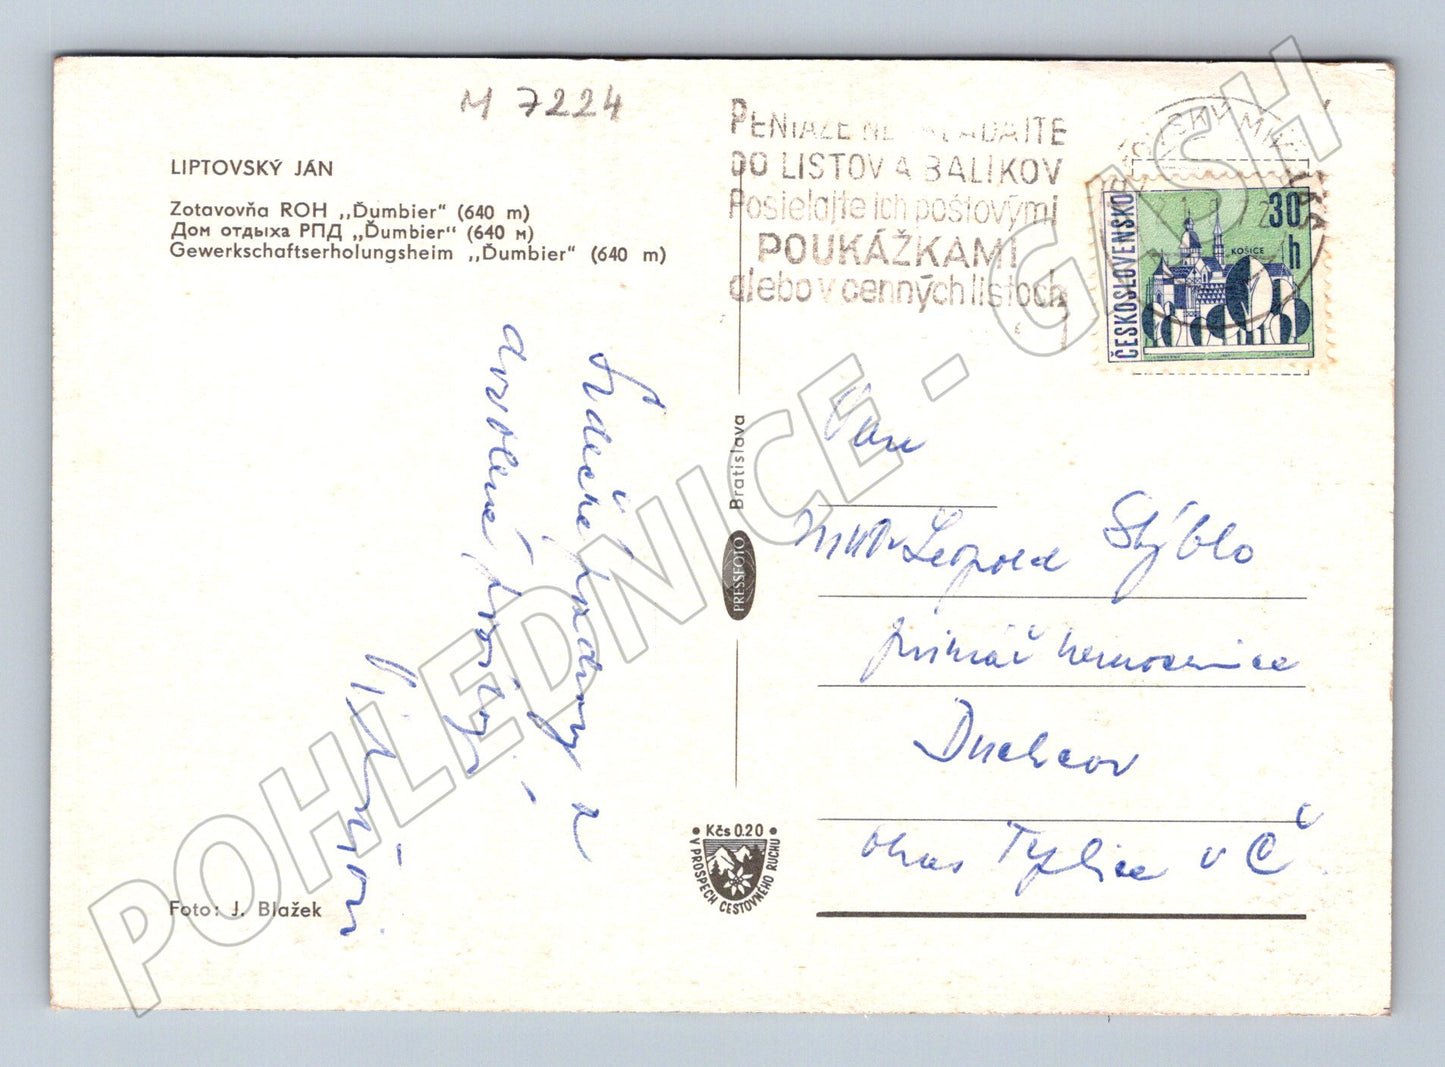 M 7224
LIPTOVSKÝ JÁN
Zotavovňa ROH „Ďumbier“ (640 m)
Дом отдыха РПД „Ďumbier“ (640 м)
Gewerkschaftserholungsheim „Ďumbier“ (640 m)
Srdečné pozdravy z
dovolené
Foto: J. Blažek
Bratislava
PRESSFOTO
• Kčs 0.20 •
V PROSPECH CESTOVNÉHO RUCHU
PENIAZE NEVKLADAJTE
DO LISTOV A BALÍKOV
Posielajte ich poštovými
POUKÁŽKAMI
alebo v cenných listoch
ČESKOSLOVENSKO
30 h
KOŠICE
Pan
MUDr Leopold Stýblo
primář nemocnice
Duchcov
okres Teplice v Č
POHLEDNICE - GASH